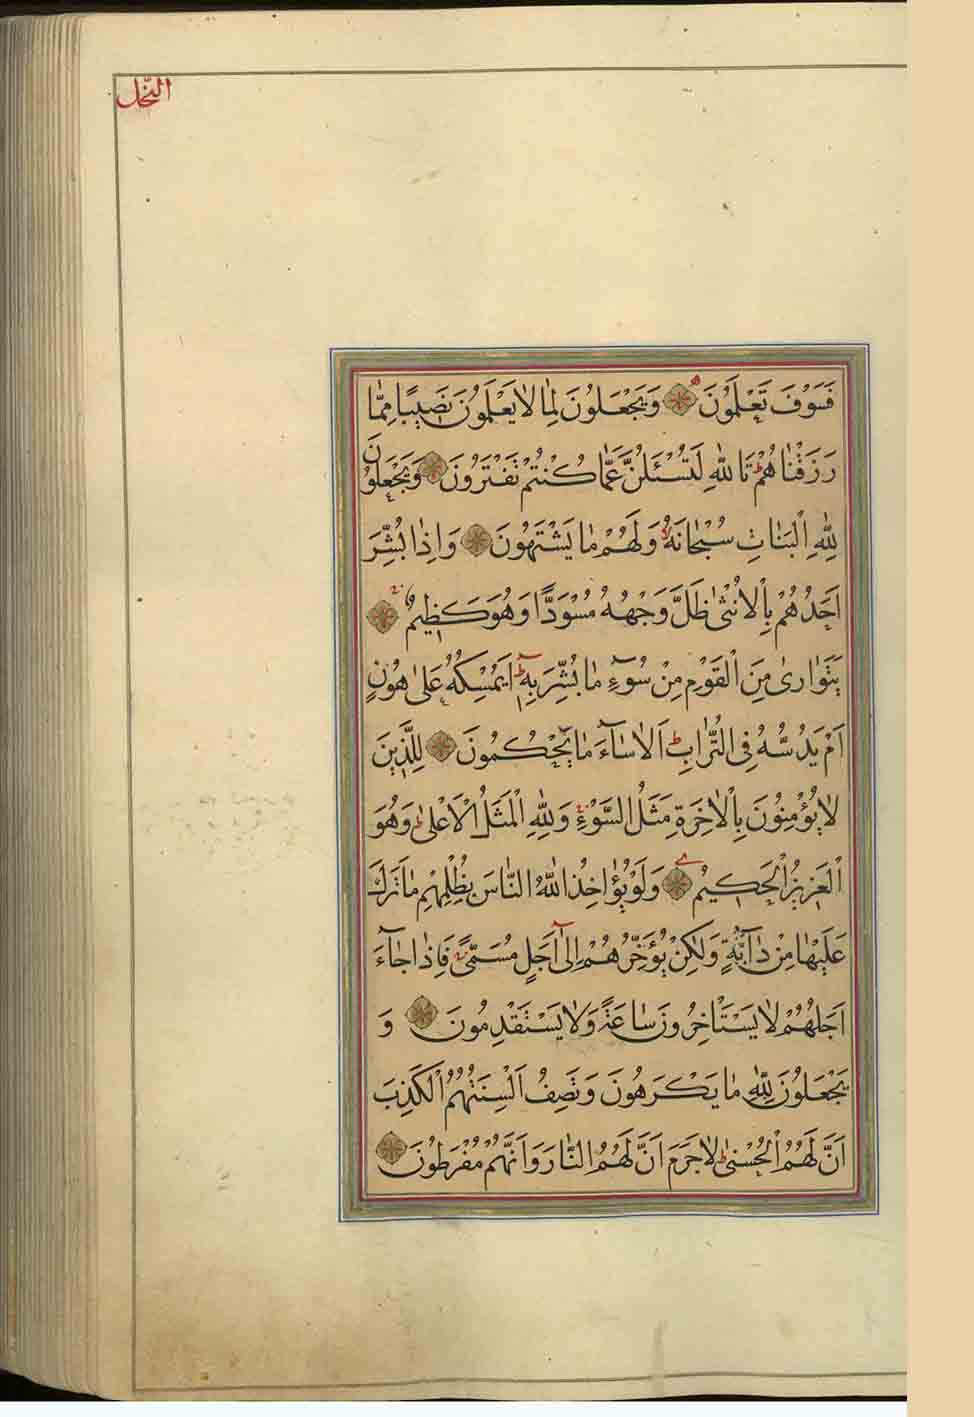 النّحل
فَسَوْفَ تَعْلَمُونَ وَيَجْعَلُونَ لِمَا لَا يَعْلَمُونَ نَصِيبًا مِمَّا
رَزَقْنَاهُمْ ط تَاللّٰهِ لَتُسْـَٔلُنَّ عَمَّا كُنْتُمْ تَفْتَرُونَ وَيَجْعَلُونَ
لِلّٰهِ الْبَنَاتِ سُبْحَانَهُ وَلَهُمْ مَا يَشْتَهُونَ وَاِذَا بُشِّرَ
اَحَدُهُمْ بِالْاُنْثٰى ظَلَّ وَجْهُهُ مُسْوَدًّا وَهُوَ كَظِيمٌ
يَتَوَارٰى مِنَ الْقَوْمِ مِنْ سُوٓءِ مَا بُشِّرَ بِهٖ ط اَيُمْسِكُهُ عَلٰى هُونٍ
اَمْ يَدُسُّهُ فِى التُّرَابِ ط اَلَا سَآءَ مَا يَحْكُمُونَ لِلَّذِينَ
لَا يُؤْمِنُونَ بِالْاٰخِرَةِ مَثَلُ السَّوْءِ وَلِلّٰهِ الْمَثَلُ الْاَعْلٰى ط وَهُوَ
الْعَزِيزُ الْحَكِيمُ وَلَوْ يُؤَاخِذُ اللّٰهُ النَّاسَ بِظُلْمِهِمْ مَا تَرَكَ
عَلَيْهَا مِنْ دَآبَّةٍ وَلٰكِنْ يُؤَخِّرُهُمْ اِلٰٓى اَجَلٍ مُسَمًّى فَاِذَا جَآءَ
اَجَلُهُمْ لَا يَسْتَأْخِرُونَ سَاعَةً وَلَا يَسْتَقْدِمُونَ وَ
يَجْعَلُونَ لِلّٰهِ مَا يَكْرَهُونَ وَتَصِفُ اَلْسِنَتُهُمُ الْكَذِبَ
اَنَّ لَهُمُ الْحُسْنٰى ط لَا جَرَمَ اَنَّ لَهُمُ النَّارَ وَاَنَّهُمْ مُفْرَطُونَ